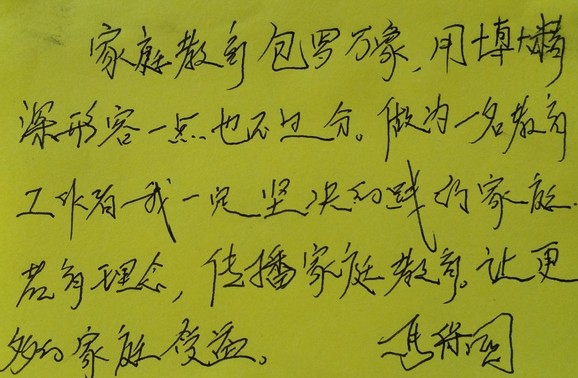 家庭教育包罗万象,用博大精
深形容一点也不过分。做为一名教育
工作者我一定坚决的践行家庭
教育理念,传播家庭教育。让更
多的家庭受益。